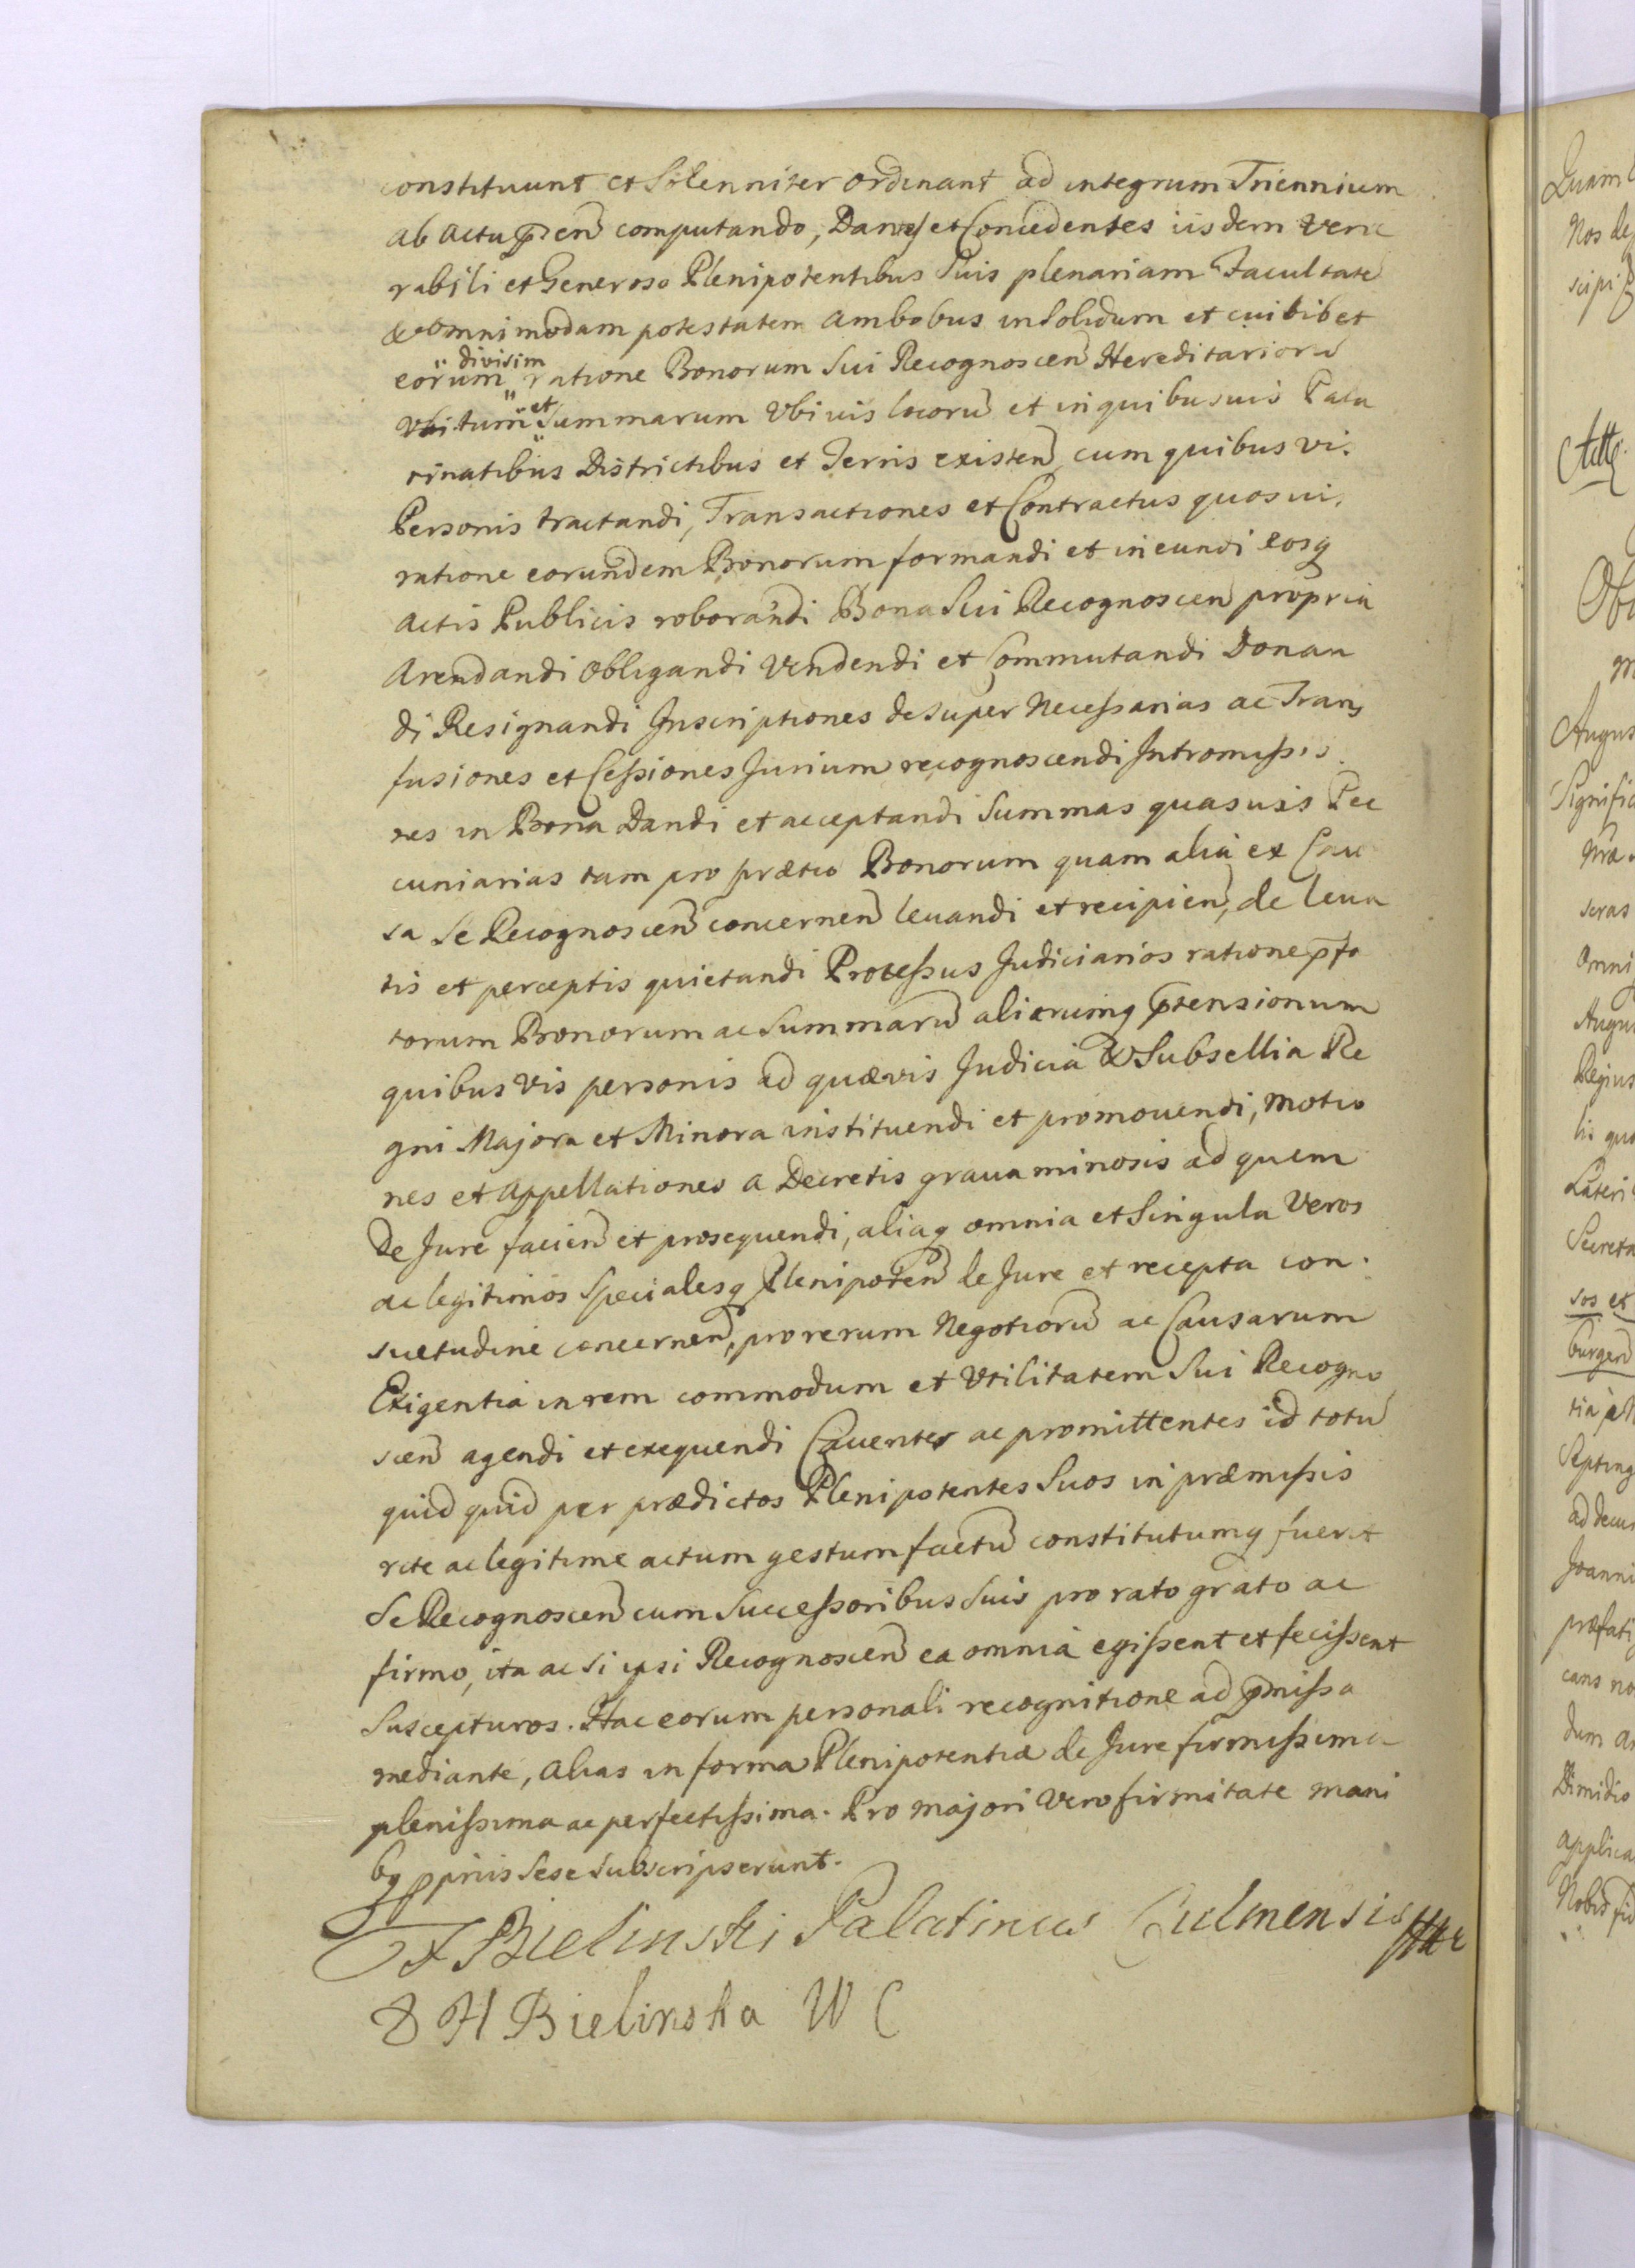 constituunt et Solenniter ordinant ad integrum Triennium
ab actu p̄n̄ computando, Dantes et Concedentes iisdem vene
rabili et Generoso Plenipotentibus Suis plenariam Facultatē
& omnimodam potestatem ambobus in Solidum et cuilibet
divisim
eorum ratione Bonorum Sui Recognoscen̄ Hereditariorū
et
Summarum Vbi uis locorū et in quibusuis Pala
tinatibus Districtibus et Terris existen̄ cum quibus vi.
Personis tractandi, Transactiones et Contractus quosui.
ratione eorundem Bonorum formandi et ineundi eosq
actis Publicis roborandi Bona Sui Recognoscen̄ propria
Arendandi Obligandi Vendendi et Commutandi Donan
di Resignandi Inscriptiones desuper Necessarias ac Trans
fusiones et Cessiones Jurium recognoscendi Intromissio
nes in Bona Dandi et acceptandi Summas quasuis Pec
cuniarias tam pro prætio Bonorum quam alia ex Cau
sa Se Recognoscen̄ concernen̄ leuandi et recipien̄, de leua
tis et perceptis quietandi Processus Judiciarios ratione p̄fa
torum Bonorum ac Summarū aliarumq p̄tensionum
quibus vis personis ad quævis Judicia & Subsellia Re
gni Majora et Minora instituendi et promouendi, motio
nes et Appellationes a Decretis grauaminosis ad quem
De Jure facien̄ et prosequendi, aliaq omnia et Singula Veros
ac legitimos Specialesq Plenipoten̄ de Jure et recepta con.
suetudine concernen̄, pro rerum Negotiorū ac Causarum
Exigentia in rem commodum et Vtilitatem Sui Recogno
scen̄ agendi et exequendi Cauentes ac promittentes id totū
quid quid per prædictos Plenipotentes Suos in præmissis
rite ac legitime actum gestum factū constitutumq fuerit
Se Recognoscen̄ cum Successoribus Suis pro rato grato ac
firmo, ita ac si ipsi Recognoscen̄ ea omnia egissent et fecissent
Suscepturos. Hac eorum personali recognitione ad p̄missa
mediante, alias in forma Plenipotentiæ de Jure firmissima
plenissima ac perfectissima. Pro majori vero firmitate mani
bq ppriis Sese Subscripserunt.
Bielinski Palatinus Culmensis
H Bielinska W C
Quam
Nos de
scipi
Actt.
Angus
Signific
scras
omni
Augu
Regius
lis quo
Lateri
Secreta
sos et
burgen̄
Septing
ad decu
Joanni
præfati
cans no
dum a
Dimidio
applica
Nobis